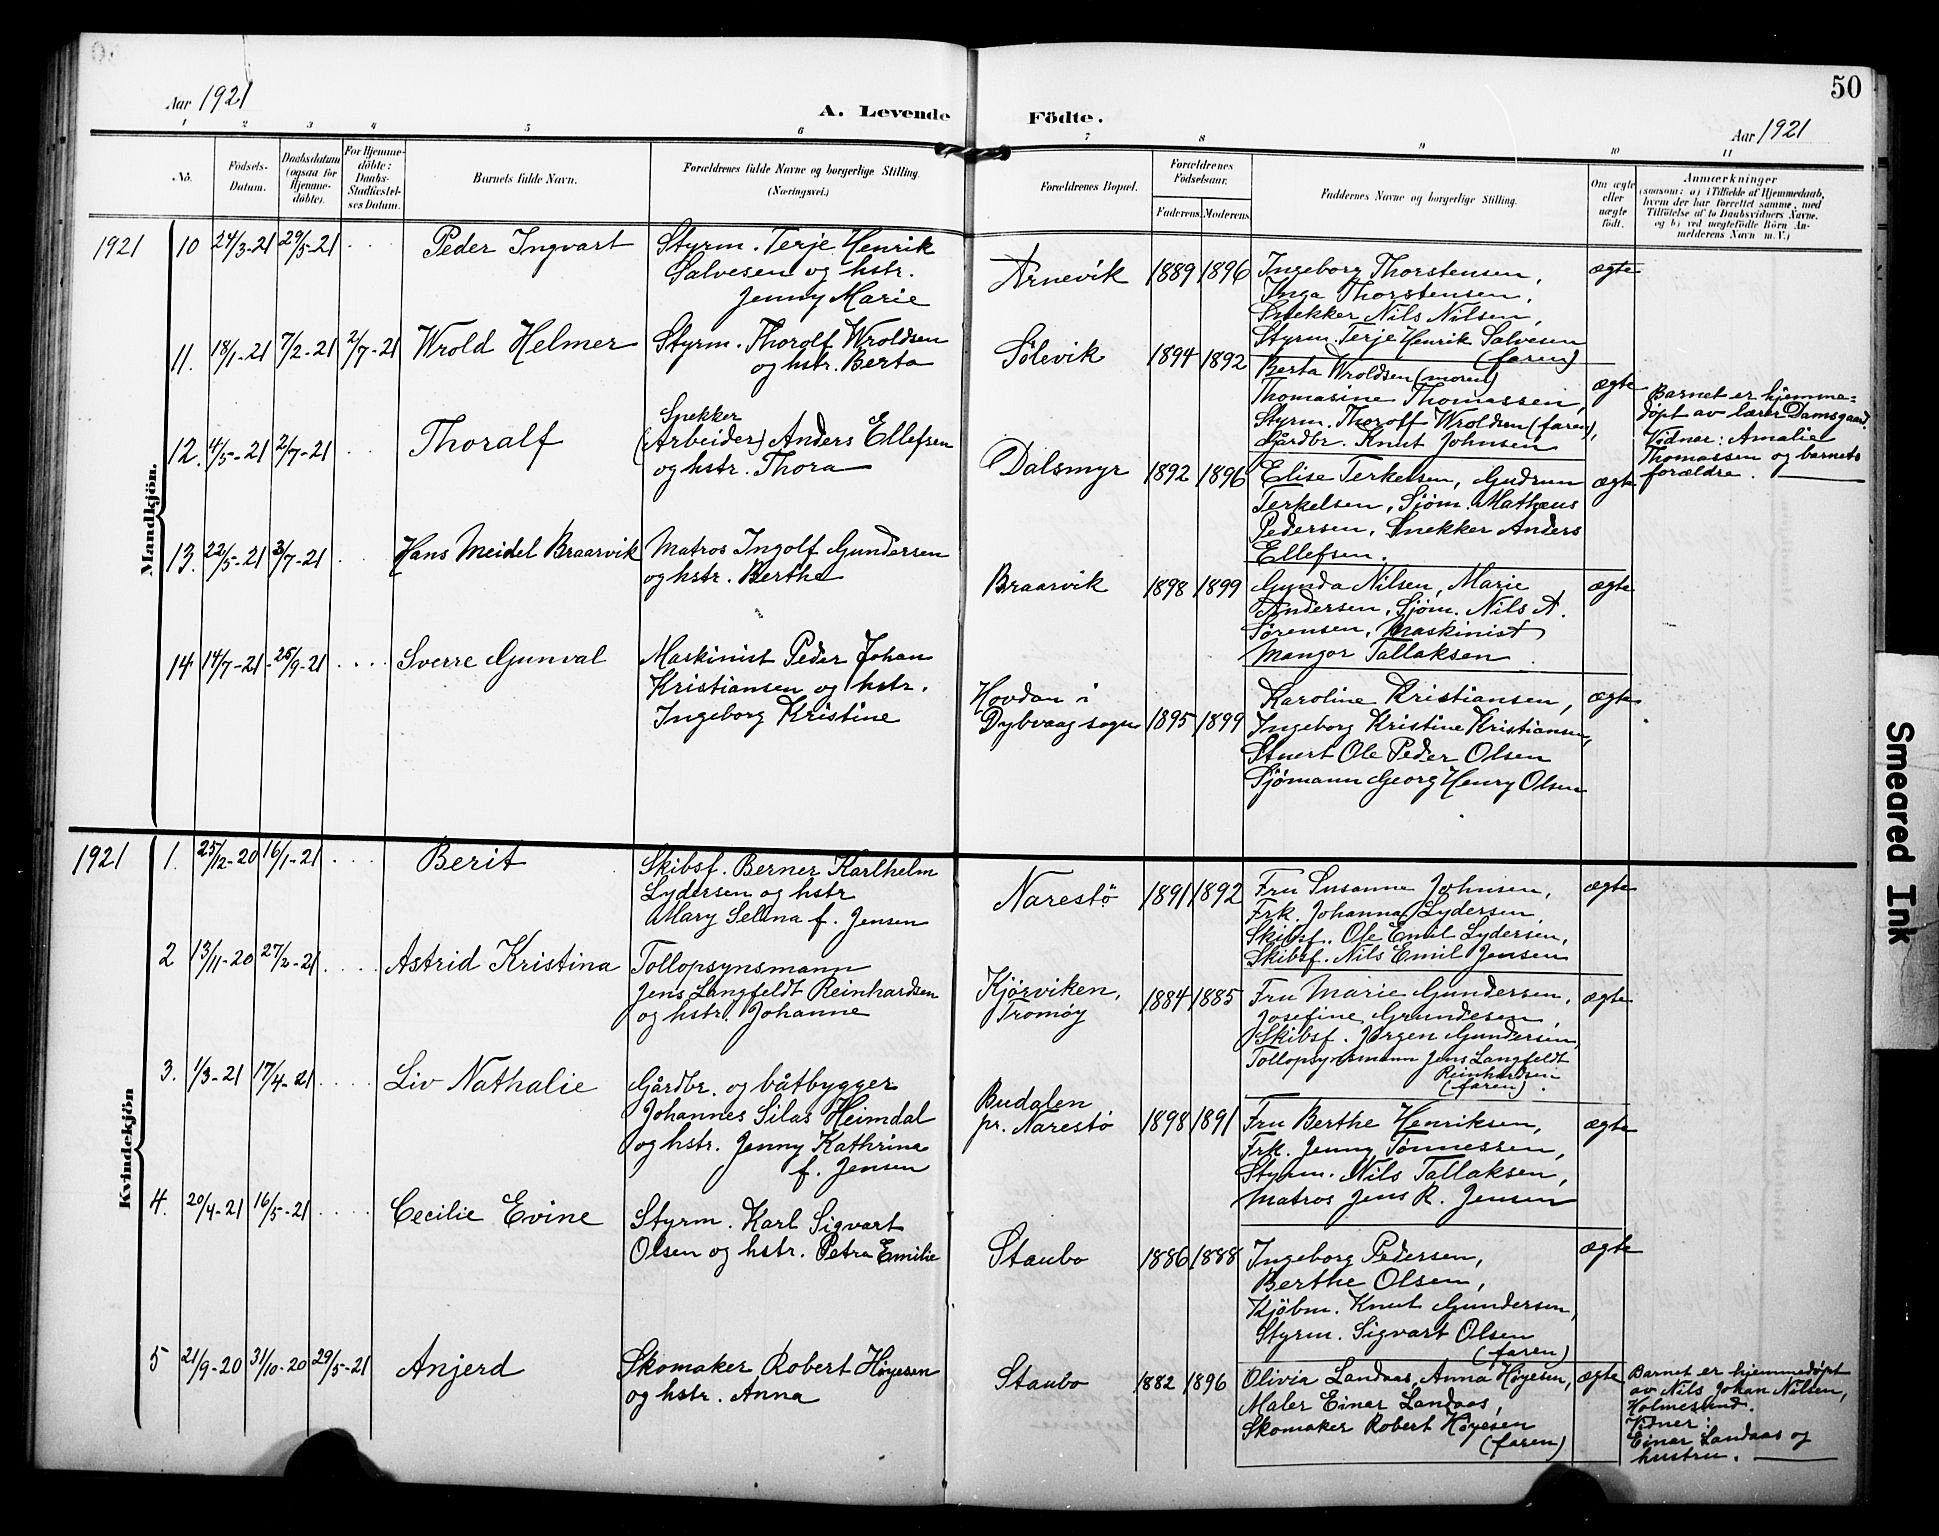 50
Aar 1921
A. Levende Födte.
Aar 1921
1 2 3 4 5 6 7 8 9 10 11
No.
Födsels-
Datum.
Daabsdatum
(ogsaa for
Hjemme-
döbte).
For Hjemme-
döbte:
Daabs-
Stadfæstel-
ses Datum.
Barnets fulde Navn.
Forældrenes fulde Navne og borgerlige Stilling.
(Næringsvei.)
Forældrenes Bopæl.
Forældrenes
Födselsaar.
Faderens. Moderens.
Faddernes Navne og borgerlige Stilling.
Om ægte
eller
uægte
födt.
Anmærkninger
(saasom: a) i Tilfælde af Hjemmedaab,
hvem der har forrettet samme, med
Tilföielse af to Daabsvidners Navne.
og b) ved uægtefödte Börn An-
melderens Navn m. V.)
Mandkjön.
1921 10 24/3-21 29/5-21 Peder Ingvart
Styrm. Terje Henrik
Salvesen og hstr.
Jenny Marie
Arnevik 1889 1896
Ingeborg Thorstensen,
Inga Thorstensen,
Snekker Nils Nilsen,
Styrm. Terje Henrik Salvesen
(faren)
ægte
11. 18/1-21 7/2-21 2/7-21 Wrold Helmer
Styrm. Thorolf Wroldsen
og hstr. Berta
Sølevik 1894 1892
Berta Wroldsen (moren)
Thomasine Thomassen,
Styrm. Thorolf Wroldsen (faren),
Gårdbr. Knut Johnsen
ægte
Barnet er hjemme-
døpt av lærer Damsgaard.
Vidner: Amalie
Thomassen og barnets
forældre.
12. 4/5-21 2/7-21 Thoralf
Snekker
(Arbeider) Anders Ellefsen
og hstr. Thora
Dalsmyr 1892 1896
Elise Terkelsen, Gudrun
Terkelsen, Sjøm. Mathæus
Pedersen, Snekker Anders
Ellefsen.
ægte
13. 22/5-21 3/7-21 Hans Meidel Braarvik
Matros Ingolf Gundersen
og hstr. Berthe
Braarvik 1898 1899
Gunda Nilsen, Marie
Andersen, Sjøm. Nils A.
Sørensen, Maskinist
Mangor Tallaksen
ægte
14 14/7-21 25/9-21 Sverre Gunval
Maskinist Peder Johan
Kristiansen og hstr.
Ingeborg Kristine
Hovdan i
Dybvaag sogn 1895 1899
Karoline Kristiansen,
Ingeborg Kristine Kristiansen,
Stuert Ole Peder Olsen
Sjømann Georg Henry Olsen
ægte
Kvindekjön
1921 1. 25/12-20 16/1-21 Berit
Skibsf. Berner Karlhelm
Lydersen og hstr
Mary Selina f. Jensen
Narestö 1891 1892
Fru Susanne Johnsen,
Frk. Johanna Lydersen,
Skibsf. Ole Emil Lydersen,
Skibsf. Nils Emil Jensen
ægte
2 13/11-20 27/2-21 Astrid Kristina
Tollopsynsmann
Jens Langfeldt Reinhardsen
og hstr. Johanne
Kjørviken,
Tromøy 1884 1885
Fru Marie Gundersen,
Josefine Grundesen,
Skibsf. Jørgen Gundersen,
Tollopsynsmann Jens Langfeldt
Reinhardsen
(faren).
ægte
3. 1/3-21 17/4-21 Liv Nathalie
Gårdbr. og båtbygger
Johannes Silas Heimdal
og hstr. Jenny Kathrine
f. Jensen
Budalen
pr. Narestö 1898 1891
Fru Berthe Henriksen,
Frk. Jenny Tønnessen,
Styrm. Nils Tallaksen,
Matros Jens R. Jensen
ægte
4. 20/4-21 16/5-21 Cecilie Evine
Styrm. Karl Sigvart
Olsen og hstr. Petra Emilie
Staubo 1886 1888
Ingeborg Pedersen,
Berthe Olsen,
Kjøbm. Knut Gundersen,
Styrm. Sigvart Olsen
(faren)
ægte
5 21/9-20 31/10-20 29/5-21 Anjerd
Skomaker Robert Høyesen
og hstr. Anna
Staubo 1882 1896
Olivia Landaas, Anna Høyesen,
Maler Einer Landaas,
Skomaker Robert Høyesen
(faren)
ægte
Barnet er hjemmedøpt
av Nils Johan Nilsen,
Holmesund.
Vidner:
Einar Landaas og
hustru.
Smeared Ink